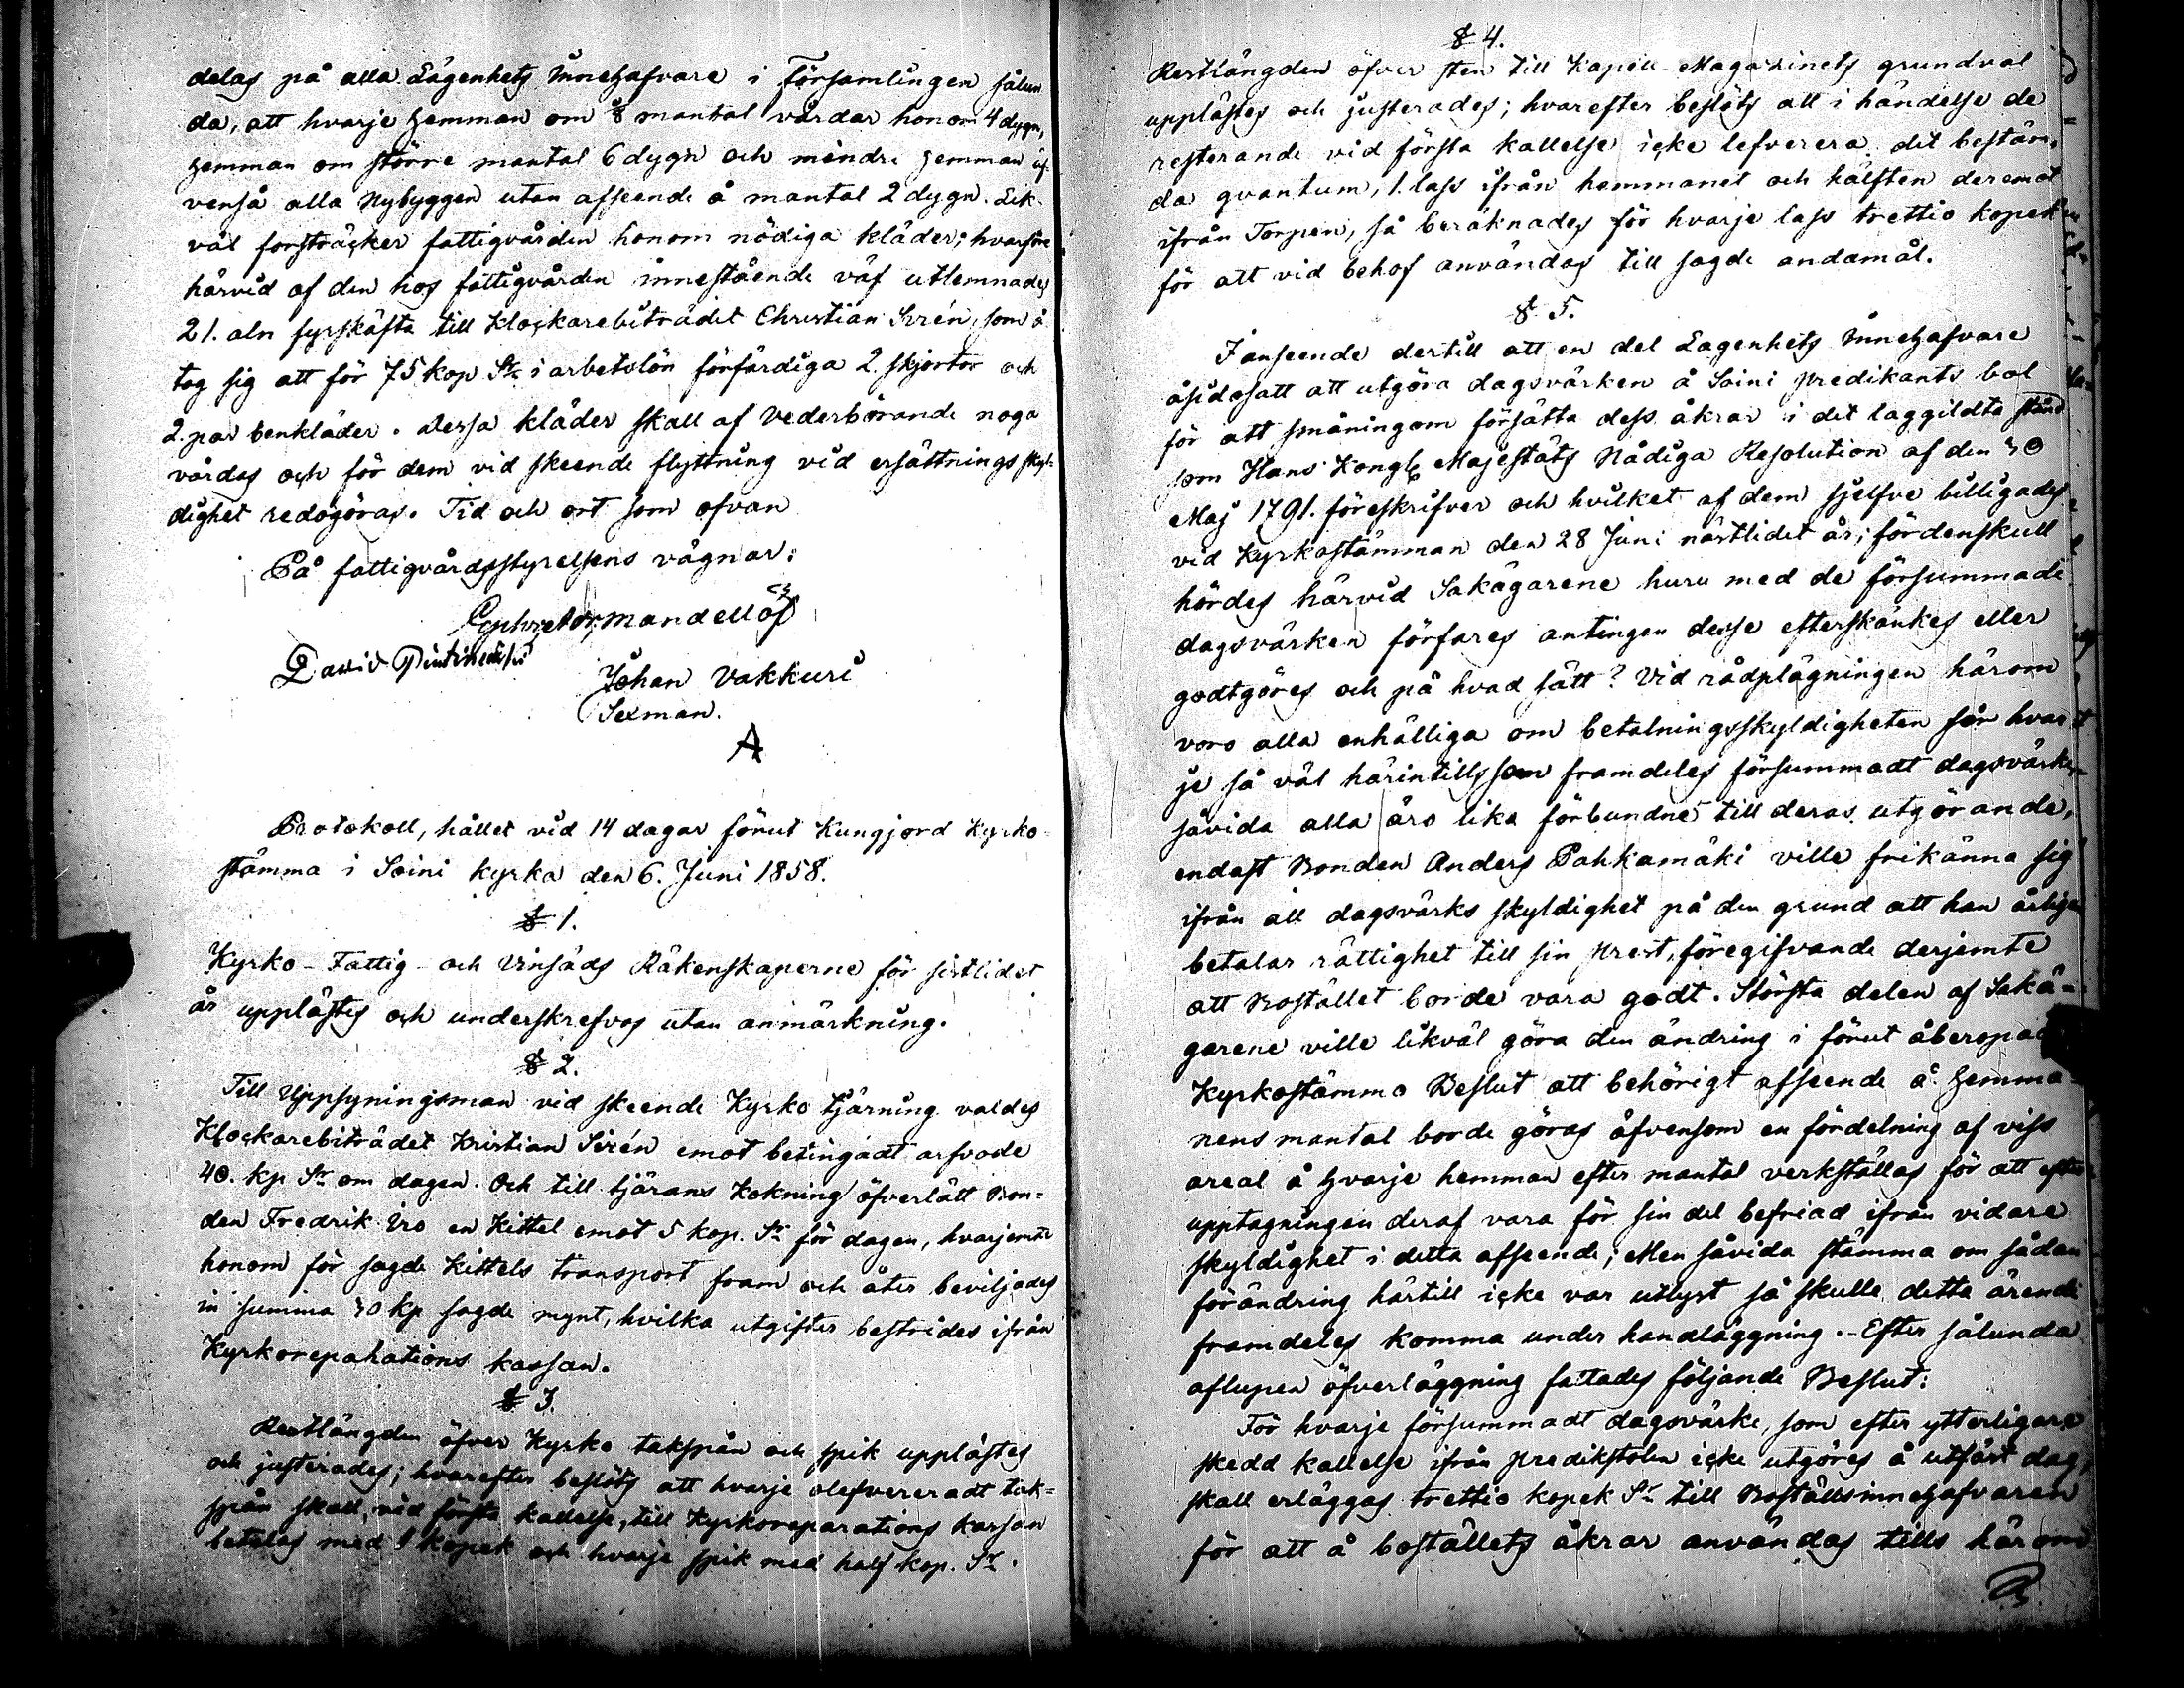 delas på alla Lägenhets Innehafvare i Församlingen sålun
da, att hvarje hemman om ⅛ mantal vårdar honom 4 dygn,
hemman om större mantal 6 dygn och mindre hemman äf-
venså alla Nybyggen utan afseende å mantal 2 dygn. Lik-
väl forsträcker fattigvården honom nödiga kläder; hvarföre
härvid af den hos fattigvården innestående väf utlemnades
21. aln fyrskäfta till Klockarebiträdet Christian Sirén, som å
tog sig att för 75 kop Sr i arbetslön förfärdiga 2. skjortor och
2. par benkläder. Dessa kläder skall af Vederbörande noga
vårdas och för dem vid skeende flyttning vid ersättnings skyl-
dighet redogöras. Tid och ort som ofvan
På fattigvårdsstyrelsens vägnar:
Mandellöf
David
Johan Vakkuri
Sexman.
A
Protokoll, hållet vid 14 dagar förut Kungjord Kyrko-
stämma i Soini kyrka den 6. Juni 1858.
§ 1.
Kyrko- Fattig- och Vinsäds Räkenskaperne för sistlidet
år upplästes och underskrefvos utan anmärkning.
§ 2.
Till Uppsyningsman vid skeende Kyrko tjärning valdes
Klockarebiträdet Kristian Sirén emot betingadt arfvode
40. kp Sr om dagen. Och till tjärans Kokning öfverlätt Bon-
den Fredrik Iro en Kittel emot 5 kop. Sr för dagen, hvarjemte
honom för sagde Kittels transport fram och åter beviljades
in summa 30 kp sagde mynt, hvilka utgifter bestrides ifrån
Kyrkoreparations kassan.
§ 3.
Restlängden öfver Kyrko takspån och spik upplästes
och justerades; hvarefter beslöts att hvarje olefvereradt tak-
spån skall, vid första kallelse, till Kyrkoreparations kassan
betalas med 1 kopek och hvarje spik med half kop. Sr.
§ 4.
Restlängden öfver sten till Kapell-Magazinets grundval
upplästes och justerades; hvarefter beslöts att i händelse de
resterande vid första kallelse icke lefverera det bestäm-
da qvantum, 1. lass ifrån hemmanet och hälften deremot
ifrån Torpen, så beräknades för hvarje lass trettio kopek
för att vid behof användas till sagde ändamål.
§ 5.
I anseende dertill att en del Lägenhets Innehafvare
åsidosatt att utgöra dagsvärken å Soini Predikants bol
för att småningom försätta dess åkrar i det laggildta stånd
som Hans Kongl Majestäts Nådiga Resolution af den 30
Maj 1791. föreskrifver och hvilket af dem sjelfve billigades
vid Kyrkostämman den 28 Juni nästlidet år; fördenskull
hördes härvid Sakägarene huru med de försummade
dagsvärken förfares antingen desse efterskänkes eller
godtgöres och på hvad sätt? Vid rådplägningen härom
voro alla enhälliga om betalningsskyldigheten för hvar
je så väl härintills som framdeles försummadt dagsvärke
såvida alla äro lika förbundne till deras utgörande,
endast Bonden Anders Pahkamäki ville frikänna sig
ifrån all dagsvärks skyldighet på den grund att han årligen
betalar rättighet till sin Prest, föregifvande derjemte
att Bostället borde vara godt. Största delen af Sakä-
garene ville likväl göra den ändring i förut åberopade
Kyrkostämmo Beslut att behörigt afseende å hemma-
nens mantal borde göras äfvensom en fördelning af viss
areal å hvarje hemman efter mantal verkställas för att efter
upptagningen deraf vara för sin del befriad ifrån vidare
skyldighet i detta afseende; Men såvida stämma om sådan
förändring härtill icke var utlyst så skulle detta ärende
framdeles komma under handläggning. - Efter sålunda
aflupen öfverläggning fattades följande Beslut:
För hvarje försummadt dagsvärke, som efter ytterligare
skedd kallelse ifrån Predikstolen icke utgöres å utfäst dag,
skall erläggas trettio kopek Sr till Boställsinnehafvaren
för att å boställets åkrar användas tills härom